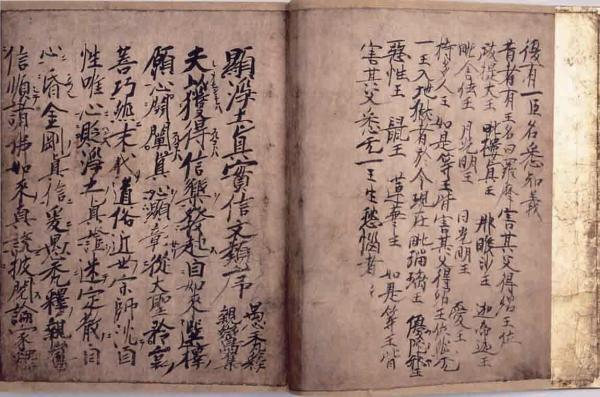 後有一臣名悉知義
昔者有王名曰羅摩害其父得紹王位
跋提大王 毗樓真王 那睺沙王 迦帝迦王
毗舍佉王 月光明王 日光明王 愛王
持多人王 如是等王皆害其父得紹王位然无
一王入地獄者於今現在毗瑠璃王 優陀邪王
惡性王 鼠王 蓮華王 如是等王皆
害其父悉无一王生愁惱者
顯淨土真實信文類序
愚禿釋
親鸞集
夫以獲得信樂發起自如來選擇
願心開闡真心顯彰從大聖矜哀
善巧然末代道俗近世宗師沈自
性唯心貶淨土真證迷定散自
心昏金剛真信爰愚禿釋親鸞
信順諸佛如來真說披閱論家釋